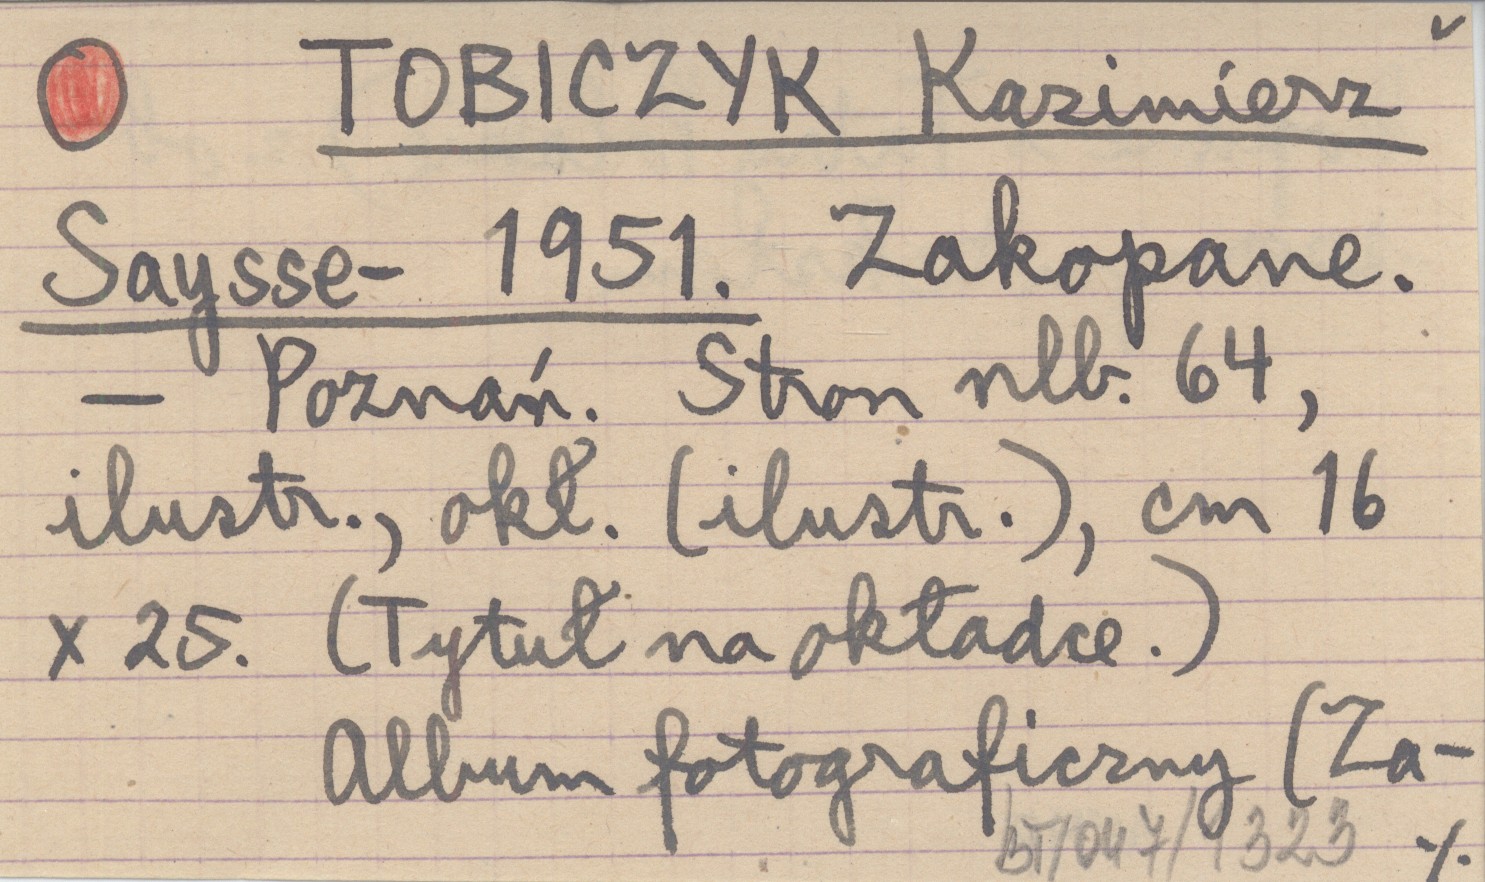 TOBICZYK Kazimierz
Saysse- 1951. Zakopane.
— Poznań. Stron nlb. 64,
ilustr., okł. (ilustr.), cm 16
x 25. (Tytuł na okładce.)
Album fotograficzny (Za-
BT/047/1323 ·/.